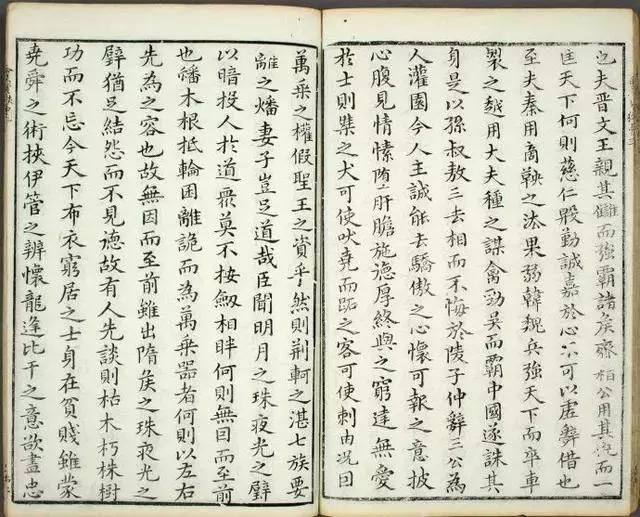 也夫晋文王親其讎而強霸諸侯齊桓公用其仇而一
匡天下何則慈仁殷勤誠嘉於心不可以虛辭借也
至夫秦用商鞅之法果弱韓魏兵強天下而卒車
裂之越用大夫種之謀禽勁吳而霸中國遂誅其
身是以孫叔敖三去相而不悔於陵子仲辭三公為
人灌園今人主誠能去驕傲之心懷可報之意披
心腹見情愫墮肝膽施德厚終與之窮達無愛
於士則桀之犬可使吠堯而跖之客可使刺由況因
萬乘之權假聖王之資乎然則荆軻之湛七族要
離之燔妻子豈足道哉臣聞明月之珠夜光之璧
以暗投人於道衆莫不按劔相眄何則無因而至前
也蟠木根柢輪囷離詭而為萬乘器者何則以左右
先為之容也故無因而至前雖出隋侯之珠夜光之
璧猶足結怨而不見德故有人先談則枯木朽株樹
功而不忘今天下布衣窮居之士身在貧賤雖蒙
堯舜之術挾伊管之辨懷龍逢比干之意欲盡忠